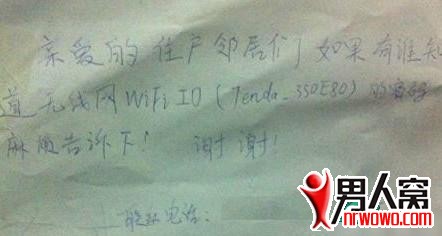 亲爱的住户邻居们,如果有谁知
道无线网WiFi ID(Tenda_350E80)的密码
麻烦告诉下! 谢谢!
联系电话:
男人窝
nrwowo.com